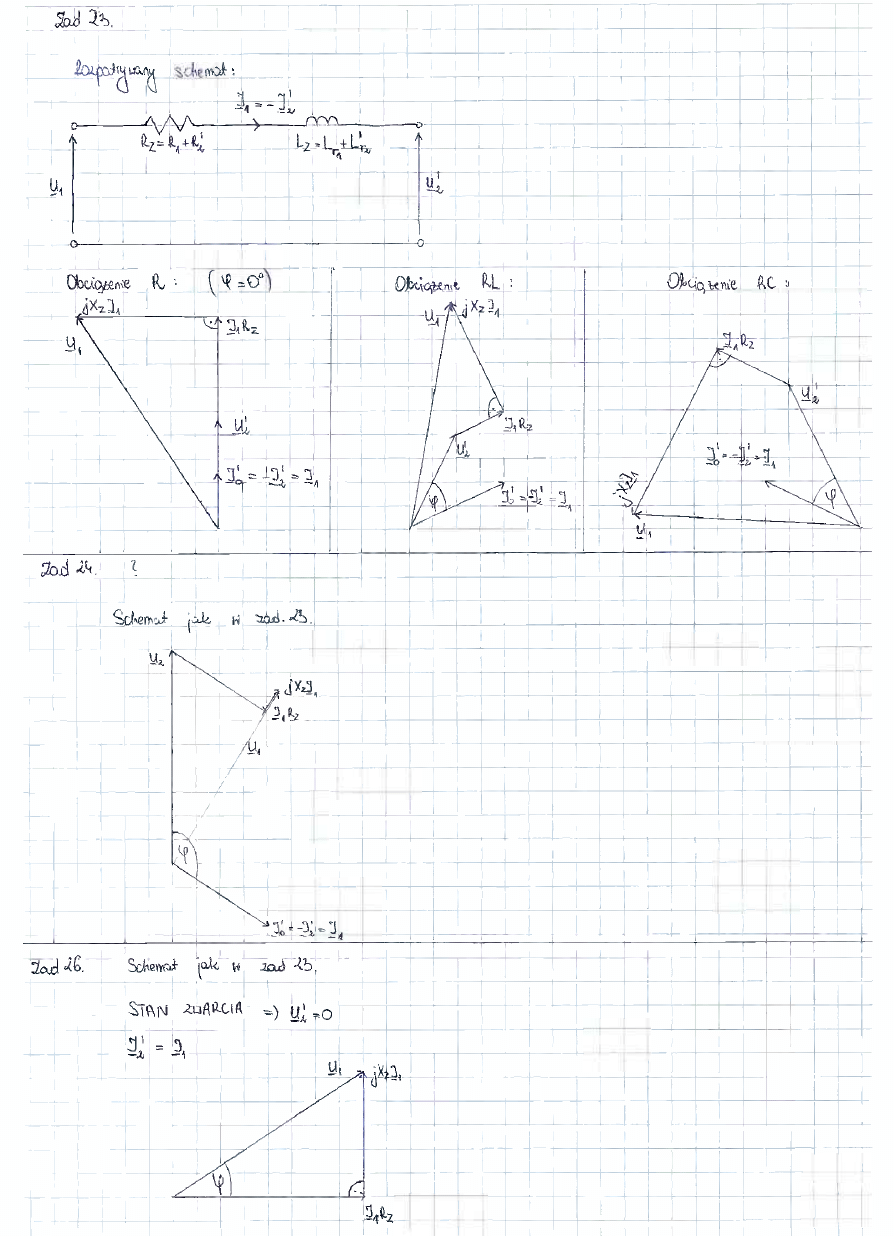 Zad 23.
Rozpatrywany schemat:
I₁ = -I₂'
R_Z = R₁ + R₂'
L_Z = L_r1 + L'_r2
U₁
U₂'
Obciążenie R : (φ = 0°)
jX_Z I₁
I₁R_Z
U₁
U₂'
I₀' = -I₂' = I₁
Obciążenie RL :
U₁
jX_Z I₁
I₁R_Z
U₂'
φ
I₀' = -I₂' = I₁
Obciążenie RC :
I₁R_Z
U₂'
I₀' = -I₂' = I₁
jX_Z I₁
φ
U₁
Zad 24. ?
Schemat jak w zad. 23.
U₂
jX_Z I₁
I₁R_Z
U₁
φ
I₀' = -I₂' = I₁
Zad 26. Schemat jak w zad 23.
STAN ZWARCIA => U₂' = 0
I₂' = I₁
U₁
jX_Z I₁
φ
I₁R_Z